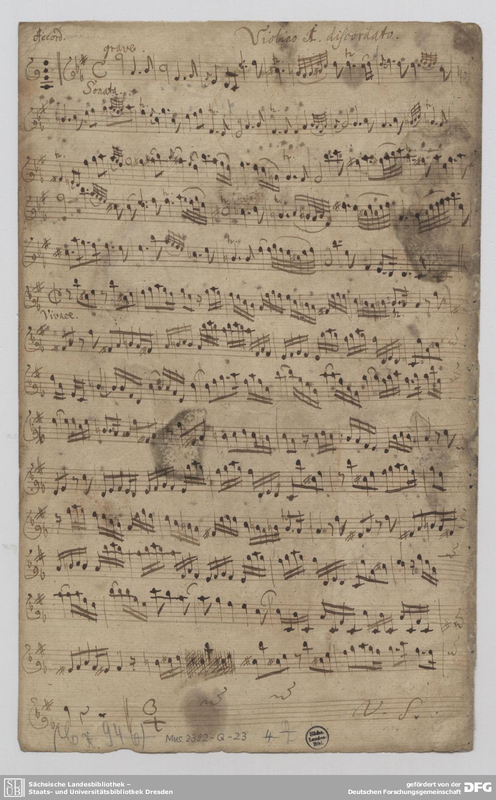 Accord.
Violino 1. discordato.
grave.
Sonata
Vivace.
V. S.
Mus. 2382-Q-23
4
Sächsische Landesbibliothek –
Staats- und Universitätsbibliothek Dresden
gefördert von der
Deutschen Forschungsgemeinschaft
DFG